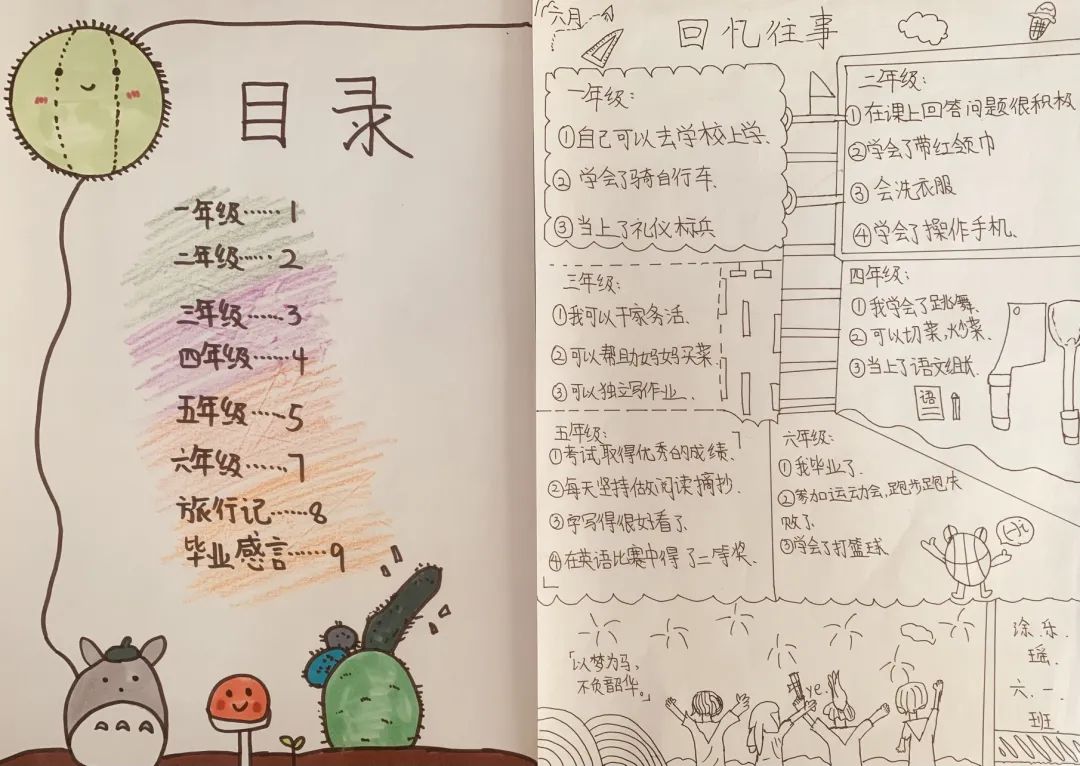 目录
一年级……1
二年级……2
三年级……3
四年级……4
五年级……5
六年级……7
旅行记……8
毕业感言……9
六月
回忆往事
一年级:
①自己可以去学校上学.
② 学会了骑自行车.
③ 当上了礼仪标兵
二年级:
①在课上回答问题很积极
②学会了带红领巾
③ 会洗衣服
④学会了操作手机.
三年级:
①我可以干家务活.
②可以帮助妈妈买菜.
③可以独立写作业.
四年级:
①我学会了跳舞.
②可以切菜,炒菜.
③当上了语文组长.
语
五年级:
①考试取得优秀的成绩.
②每天坚持做阅读摘抄.
③字写得很好看了.
④在英语比赛中得了二等奖.
六年级:
①我毕业了.
②参加运动会,跑步跑失
败了.
③学会了打篮球.
「以梦为马,
不负韶华。」
ye.
涂.乐.
瑶.
六.一.
班.